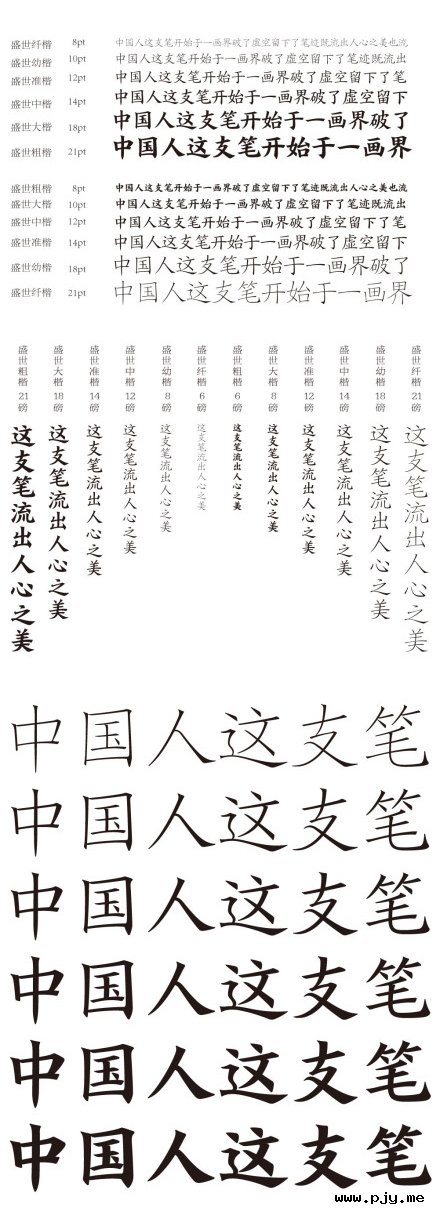 盛世纤楷 8pt 中国人这支笔开始于一画界破了虚空留下了笔迹既流出人心之美也流
盛世幼楷 10pt 中国人这支笔开始于一画界破了虚空留下了笔迹既流出
盛世准楷 12pt 中国人这支笔开始于一画界破了虚空留下了笔
盛世中楷 14pt 中国人这支笔开始于一画界破了虚空留下
盛世大楷 18pt 中国人这支笔开始于一画界破了
盛世粗楷 21pt 中国人这支笔开始于一画界
盛世粗楷 8pt 中国人这支笔开始于一画界破了虚空留下了笔迹既流出人心之美也流
盛世大楷 10pt 中国人这支笔开始于一画界破了虚空留下了笔迹既流出
盛世中楷 12pt 中国人这支笔开始于一画界破了虚空留下了笔
盛世准楷 14pt 中国人这支笔开始于一画界破了虚空留下
盛世幼楷 18pt 中国人这支笔开始于一画界破了
盛世纤楷 21pt 中国人这支笔开始于一画界
盛世粗楷 21磅 这支笔流出人心之美
盛世大楷 18磅 这支笔流出人心之美
盛世准楷 14磅 这支笔流出人心之美
盛世中楷 12磅 这支笔流出人心之美
盛世幼楷 8磅 这支笔流出人心之美
盛世纤楷 6磅 这支笔流出人心之美
盛世粗楷 6磅 这支笔流出人心之美
盛世大楷 8磅 这支笔流出人心之美
盛世准楷 12磅 这支笔流出人心之美
盛世中楷 14磅 这支笔流出人心之美
盛世幼楷 18磅 这支笔流出人心之美
盛世纤楷 21磅 这支笔流出人心之美
中国人这支笔
中国人这支笔
中国人这支笔
中国人这支笔
中国人这支笔
中国人这支笔
www.pjy.me